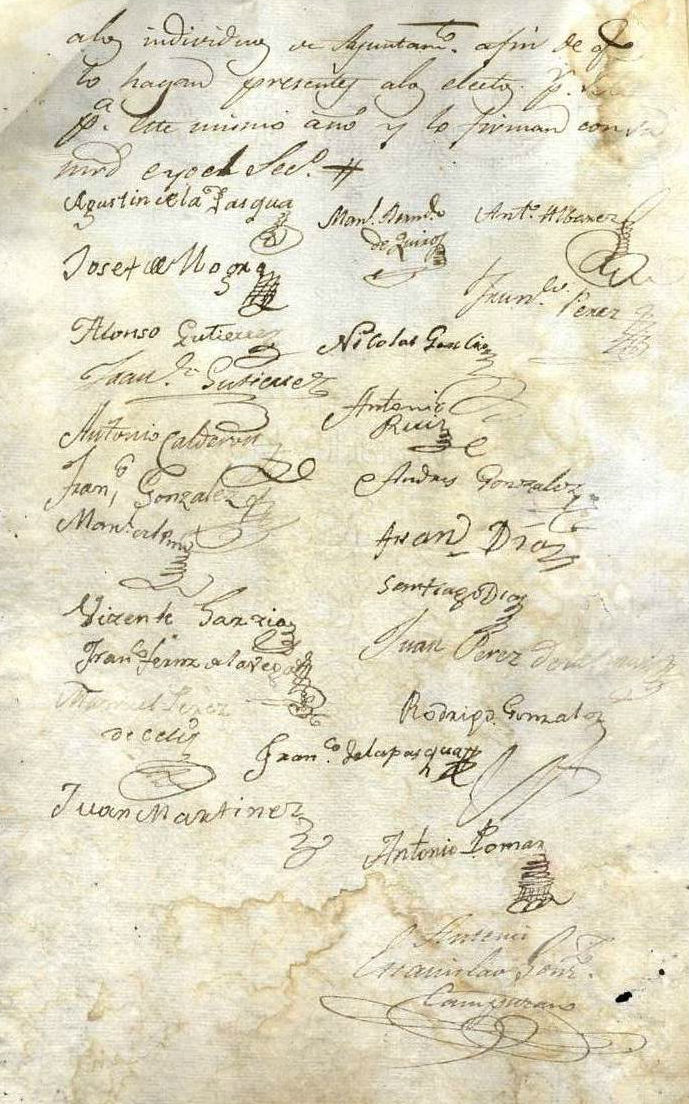 a los individuos de Ayuntamto. a fin de q
lo hagan presentes a los electos pr.
pa. este mismo año y lo firman con su
mrd e yo el Seco. #
Agustin de la Pasqua
Manl. Berndo
de Quiros
Anto. Albarez
Josef de Nogra
Franco. Perez
Alonso Gutierrez
Nicolas Gonlez
Franco. Gutierrez
Antonio
Ruiz
Antonio Calderon
Franco Gonzalez
Andres Gonzalez
Manl.
Fran Diaz
Santiago Diaz
Vizente Garzia
Juan Perez
Franco. fernz de la Vega
Manuel Perez
de Celis
Rodrigo Gonzalez
Franco. de la pasqua
Juan Martinez
Antonio Poman
Antemi
Estanislao Gonz.
Campuzano